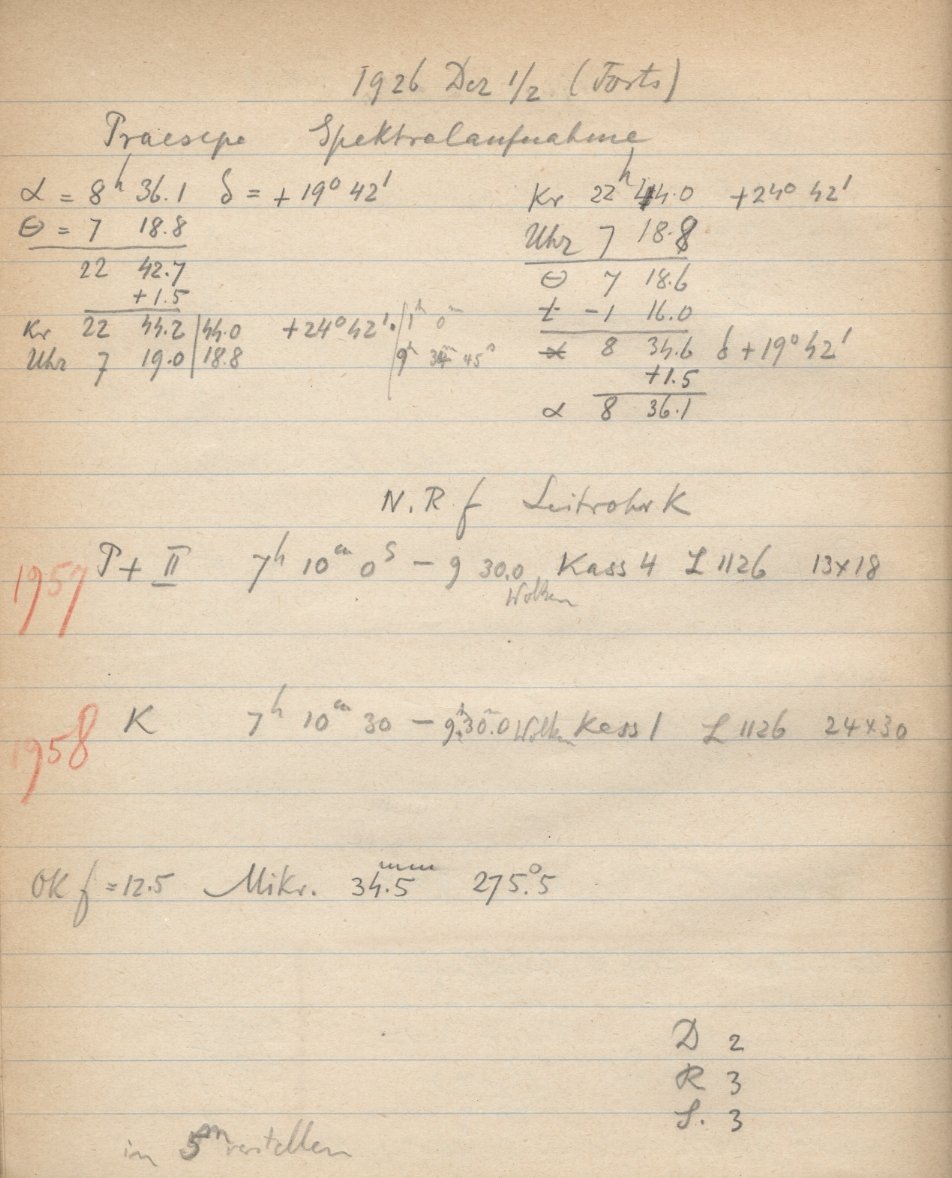 1926 Dez 1/2 (Forts)
Praesepe Spektralaufnahme
α = 8h 36.1 δ = +19° 42'
Θ = 7 18.8
22 42.7
+1.5
Kr 22 44.2 | 44.0 +24° 42'.
Uhr 7 19.0 | 18.8
1h 0m
9h 34m 45s
Kr 22h 44.0 +24° 42'
Uhr 7 18.8
Θ 7 18.6
t -1 16.0
α 8 34.6 δ +19° 42'
+1.5
α 8 36.1
N.R.f Leitrohr K
1957 T + II 7h 10m 0s – 9 30.0 Kass 4 L 1126 13×18
Wolken
1958 K 7h 10m 30 – 9h 30m.0 Wolken Kass 1 L 1126 24×30
OK f = 12.5 Mikr. 34.5mm 275°.5
D 2
R 3
S. 3
in 5m verstellen